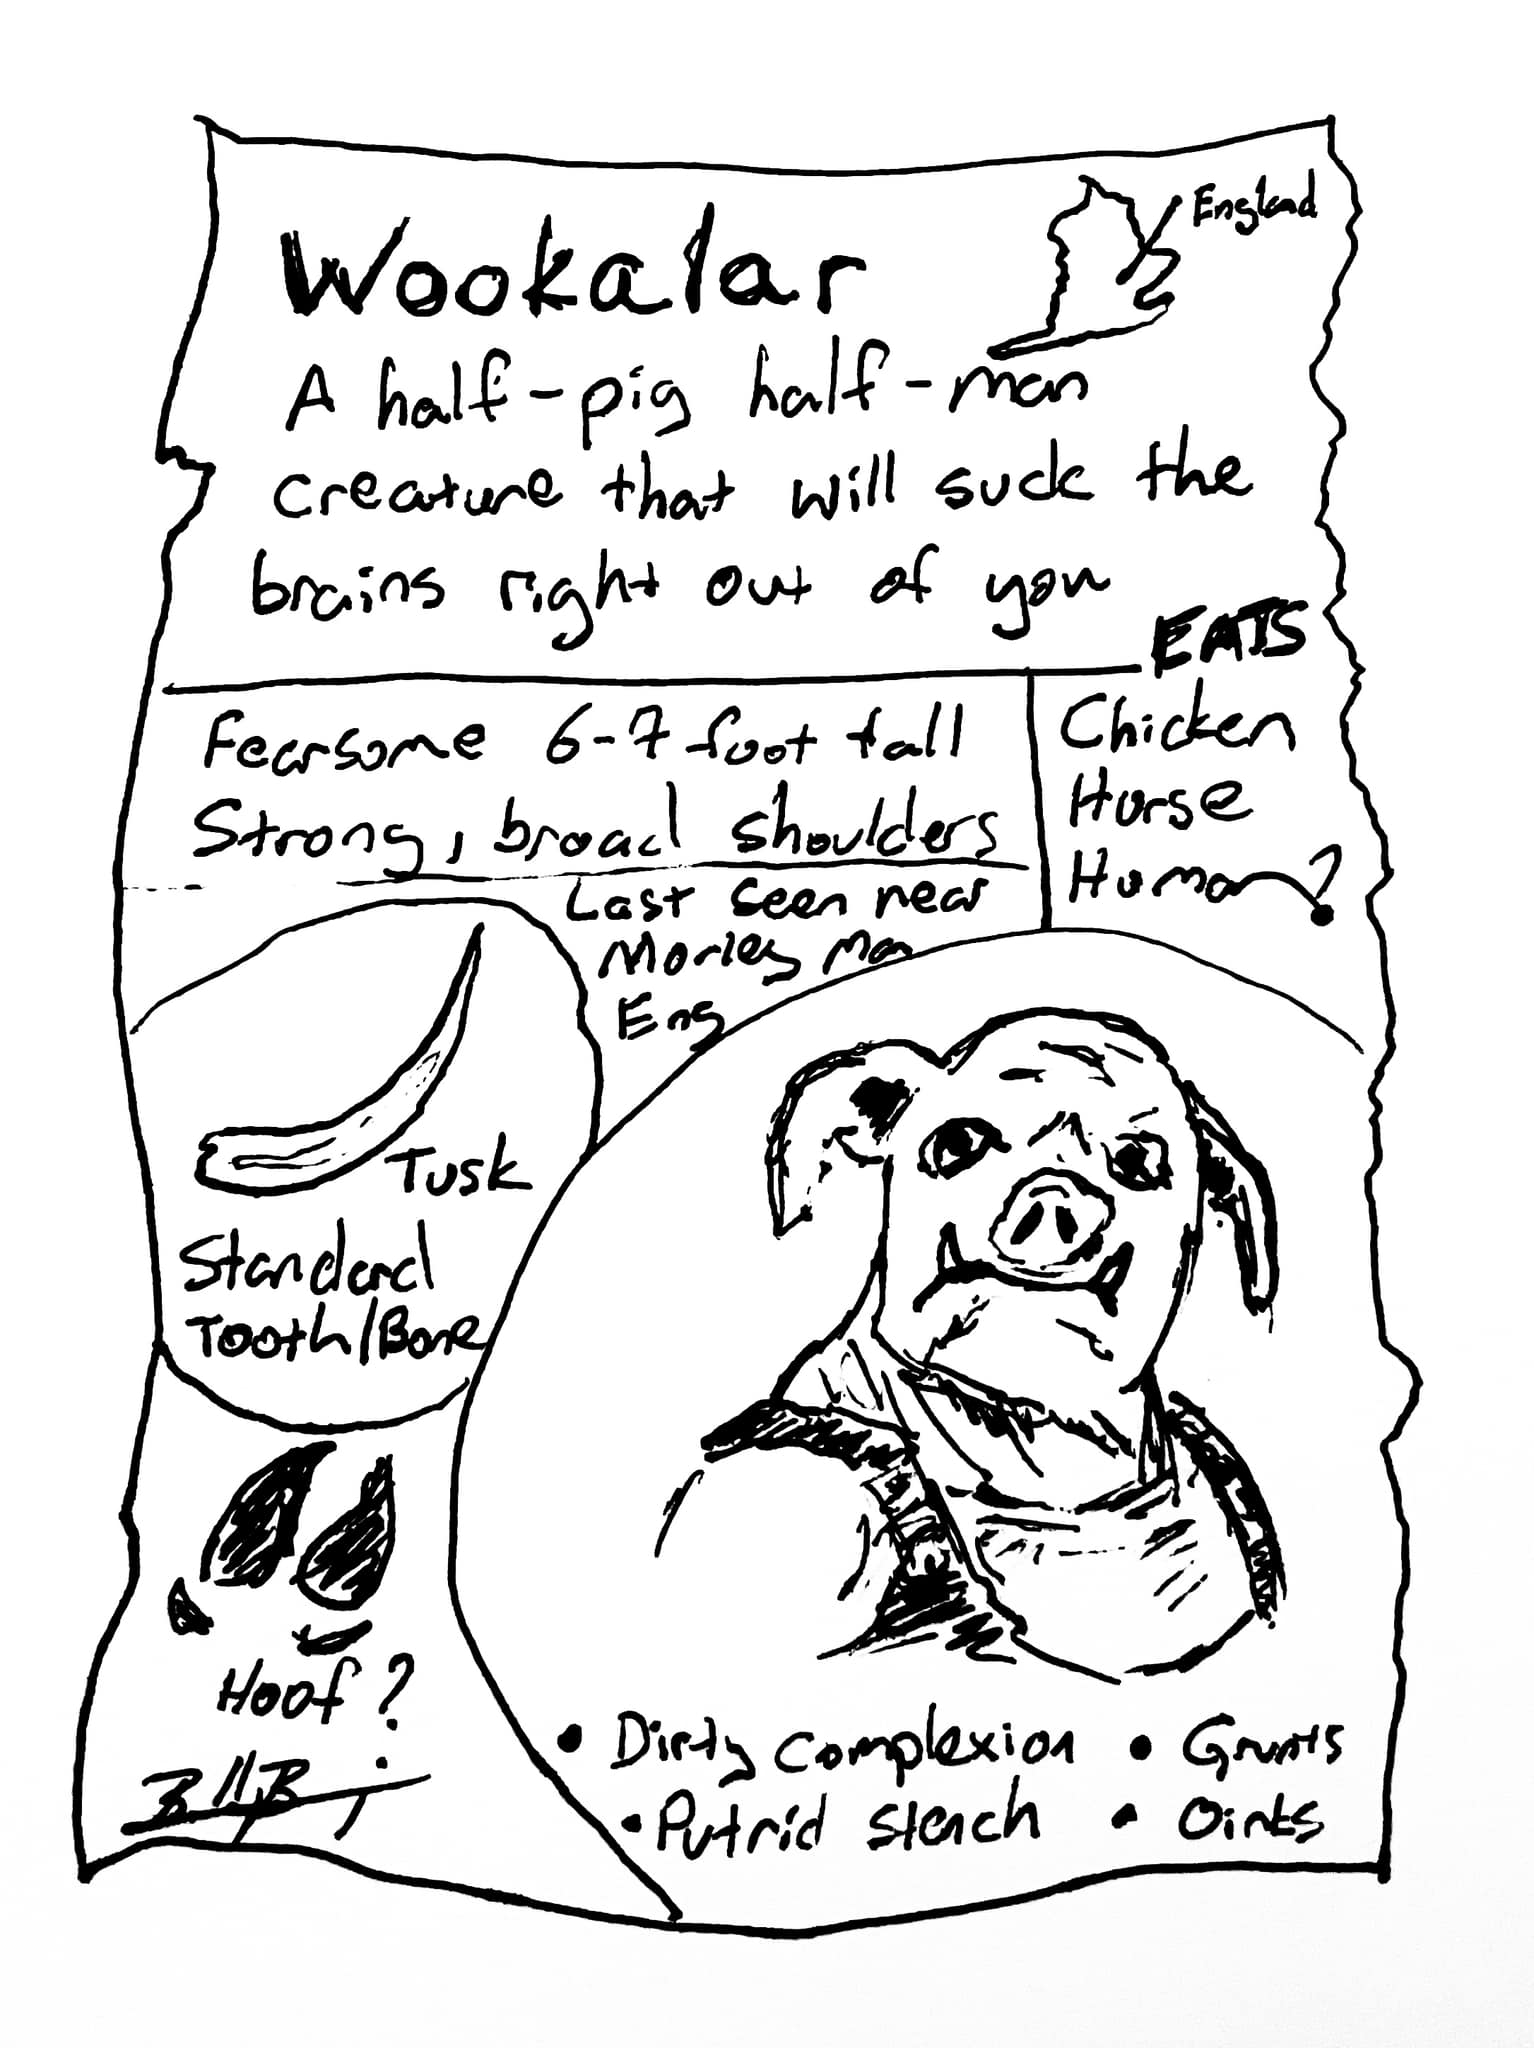 Wookalar
England
A half-pig half-man
creature that will suck the
brains right out of you
EATS
Chicken
Horse
Human?
Fearsome 6-7 foot tall
Strong, broad shoulders
Last seen near
Morley Man
Eng
Tusk
Standard
Tooth/Bone
Hoof?
• Dirty complexion
• Grunts
• Putrid stench
• Oinks